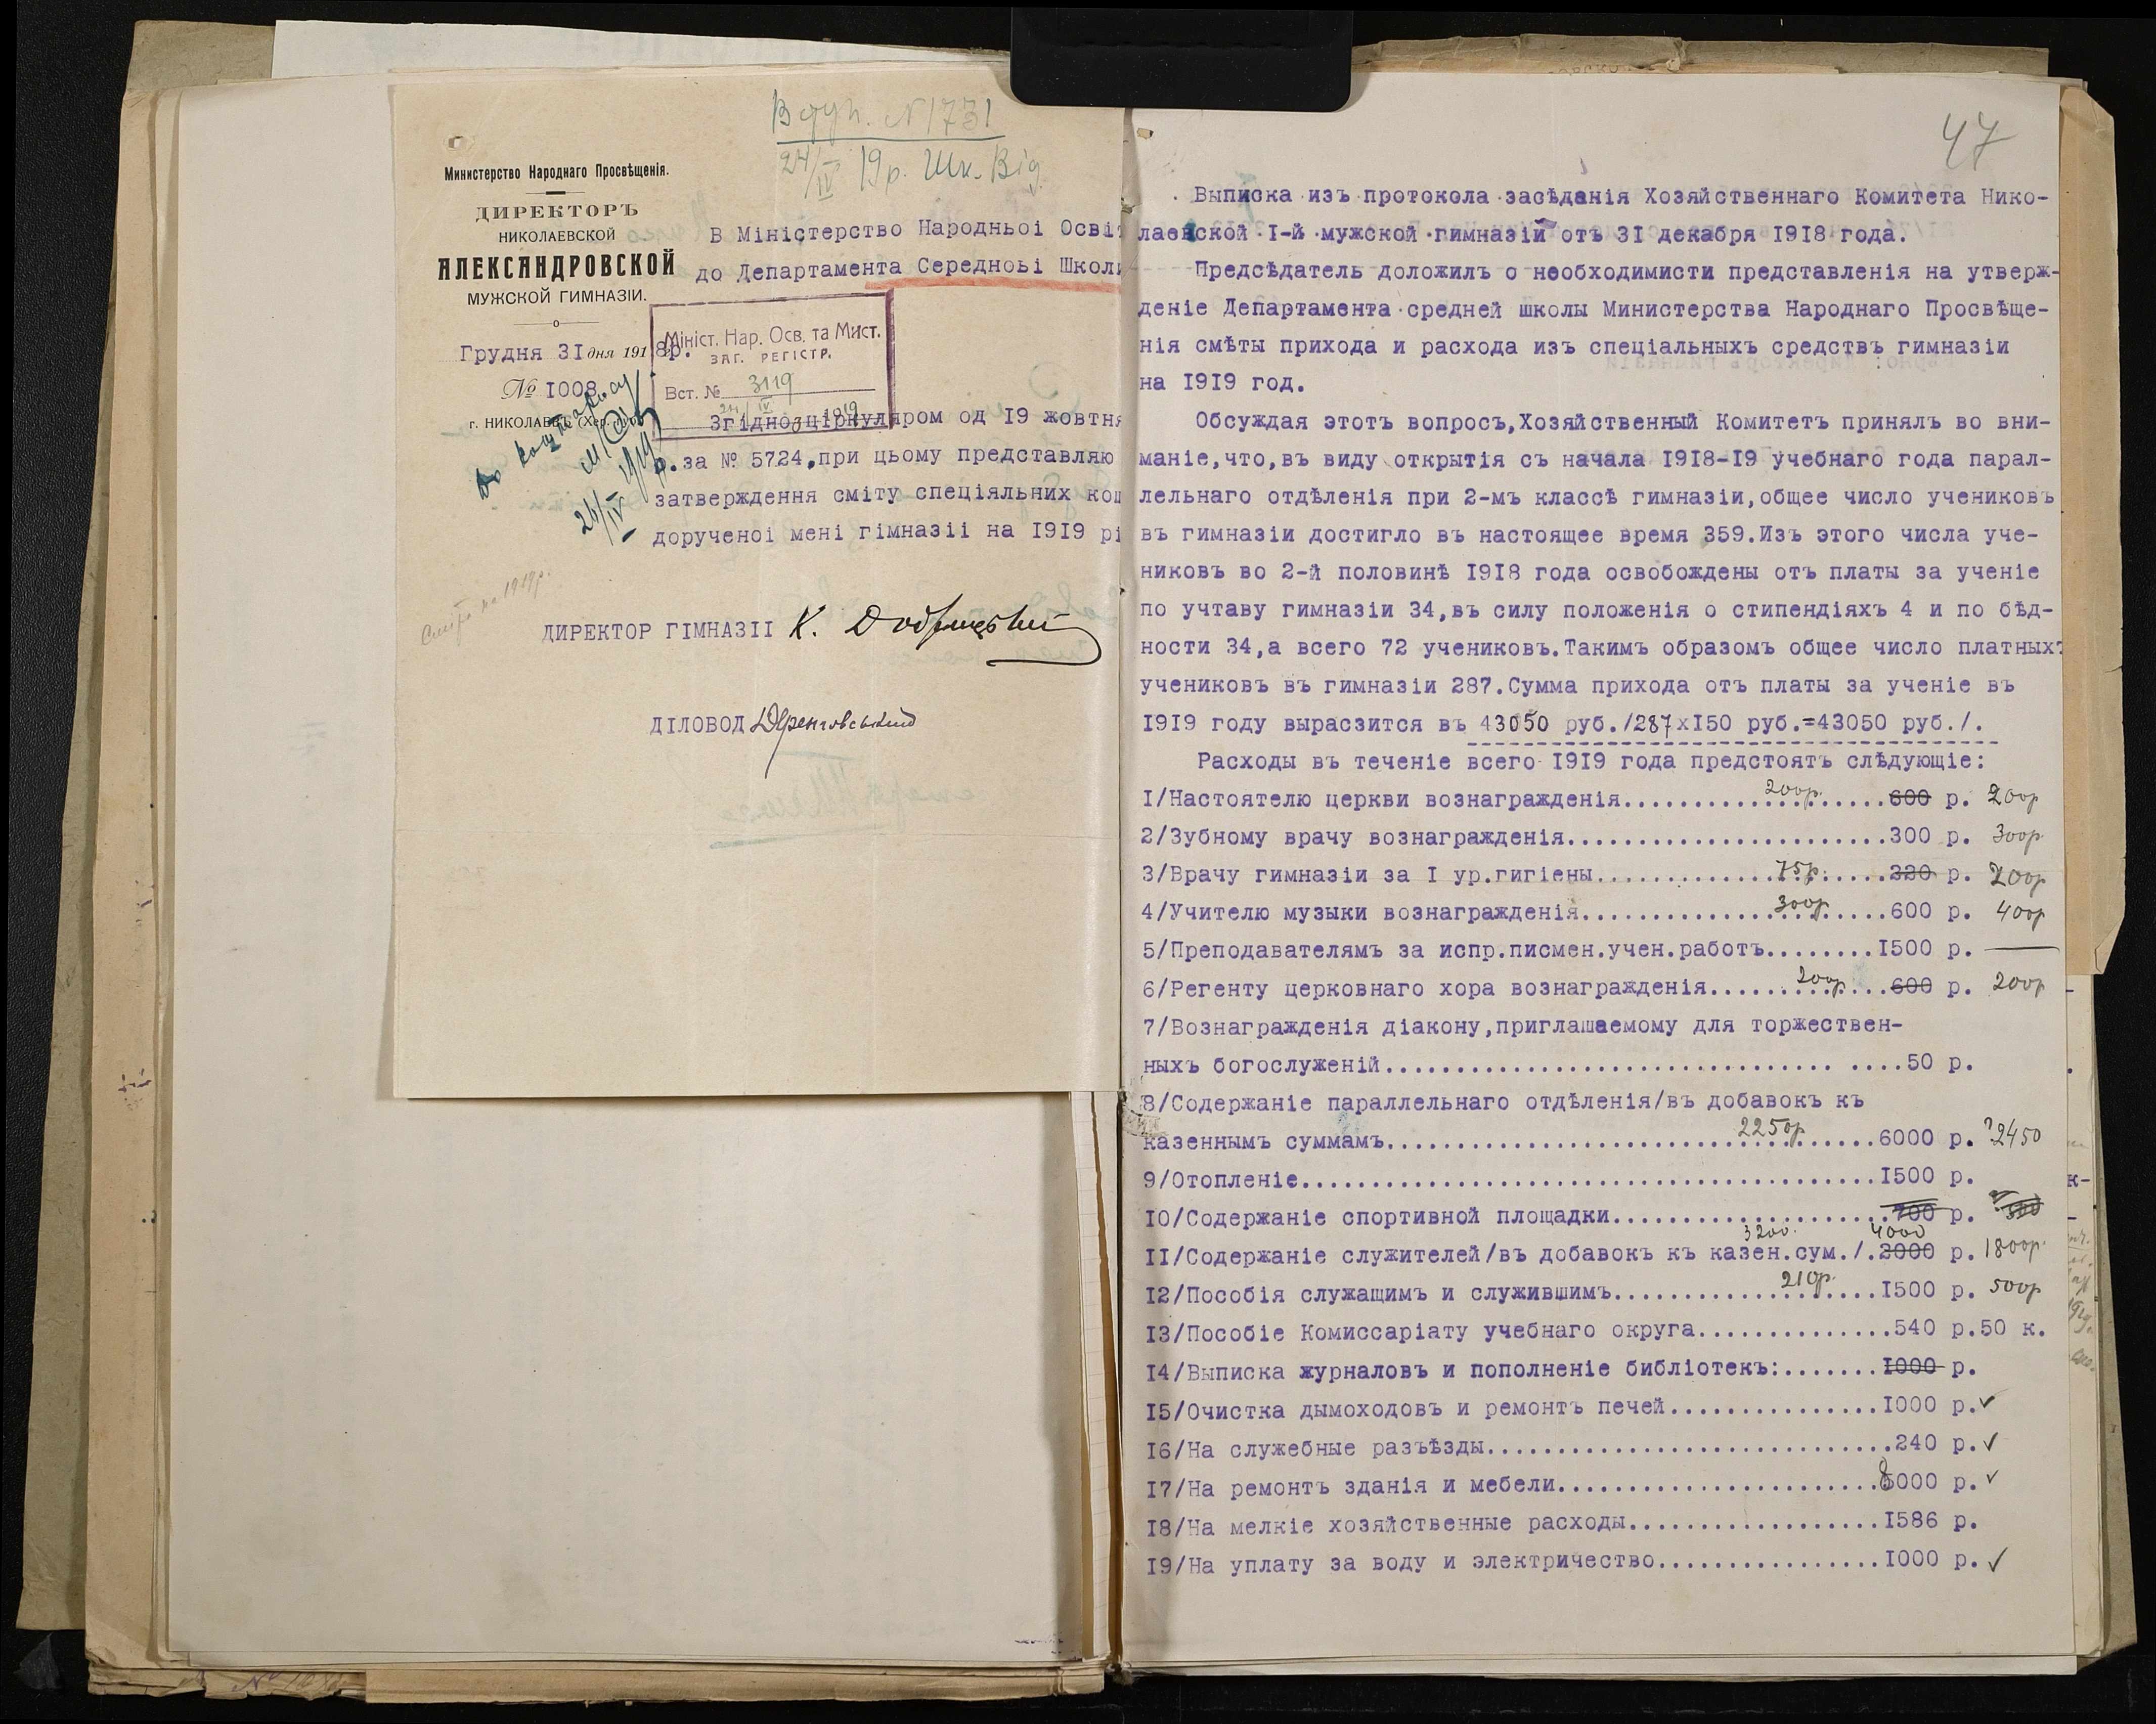 Вдуп. №1731
24/IV 19р. Шк. Від.
Министерство Народнаго Просвѣщенія.
ДИРЕКТОРЪ
НИКОЛАЕВСКОЙ
АЛЕКСАНДРОВСКОЙ
МУЖСКОЙ ГИМНАЗІИ.
Грудня 31 дня 1918р.
№ 1008
г. НИКОЛАЕВЪ (Хер.
В Міністерство Народньоі Освіт
до Департамента Середньоі Школи
Мініст. Нар. Осв. та Мист.
ЗАГ. РЕГІСТР.
Вст. № 3119
24/IV 1919
Згідно ціркуляром од 19 жовтня
р.за № 5724,при цьому представляю
затверждення сміту спеціяльних кош
дорученоі мені гімназіі на 1919 рі
24/IV
Сміта на 1919р.
ДИРЕКТОР ГІМНАЗІІ К.
ДІЛОВОД
47
Выписка изъ протокола засѣданія Хозяйственнаго Комитета Нико-
лаевской I-й мужской гимназій отъ 31 декабря 1918 года.
Предсѣдатель доложилъ о необходимисти представленія на утверж-
деніе Департамента средней школы Министерства Народнаго Просвѣще-
нія смѣты прихода и расхода изъ спеціальныхъ средствъ гимназіи
на 1919 год.
Обсуждая этотъ вопросъ,Хозяйственный Комитетъ принялъ во вни-
маніе,что,въ виду открытія съ начала 1918-19 учебнаго года парал-
лельнаго отдѣленія при 2-мъ классѣ гимназіи,общее число учениковъ
въ гимназіи достигло въ настоящее время 359.Изъ этого числа уче-
никовъ во 2-й половинѣ 1918 года освобождены отъ платы за ученіе
по учтаву гимназіи 34,въ силу положенія о стипендіяхъ 4 и по бѣд-
ности 34,а всего 72 учениковъ.Такимъ образомъ общее число платныхъ
учениковъ въ гимназіи 287.Сумма прихода отъ платы за ученіе въ
1919 году вырасзится въ 43050 руб./287х150 руб.=43050 руб./.
Расходы въ теченіе всего 1919 года предстоятъ слѣдующіе:
1/Настоятелю церкви вознагражденія...................200р.600 р. 200р
2/Зубному врачу вознагражденія.......................300 р. 300р
3/Врачу гимназіи за I ур.гигіены.............75р.....220 р. 200р
4/Учителю музыки вознагражденія..............300р....600 р. 400р
5/Преподавателямъ за испр.писмен.учен.работъ........1500 р. —
6/Регенту церковнаго хора вознагражденія......200р...600 р. 200р
7/Вознагражденія діакону,приглашаемому для торжествен-
ныхъ богослуженій................................ ....50 р.
8/Содержаніе параллельнаго отдѣленія/въ добавокъ къ
казеннымъ суммамъ.........................2250р.....6000 р. ?2450
9/Отопленіе.........................................1500 р.
10/Содержаніе спортивной площадки....................700 р.
11/Содержаніе служителей/въ добавокъ къ казен.сум./.3200. 4000 2000 р. 1800р.
12/Пособія служащимъ и служившимъ............210р...1500 р. 500р
13/Пособіе Комиссаріату учебнаго округа..............540 р.50 к.
14/Выписка журналовъ и пополненіе библіотекъ:.......1000 р.
15/Очистка дымоходовъ и ремонтъ печей...............1000 р.✓
16/На служебные разъѣзды.............................240 р.✓
17/На ремонтъ зданія и мебели.......................8000 р.✓
18/На мелкіе хозяйственные расходы..................1586 р.
19/На уплату за воду и электричество................1000 р.✓